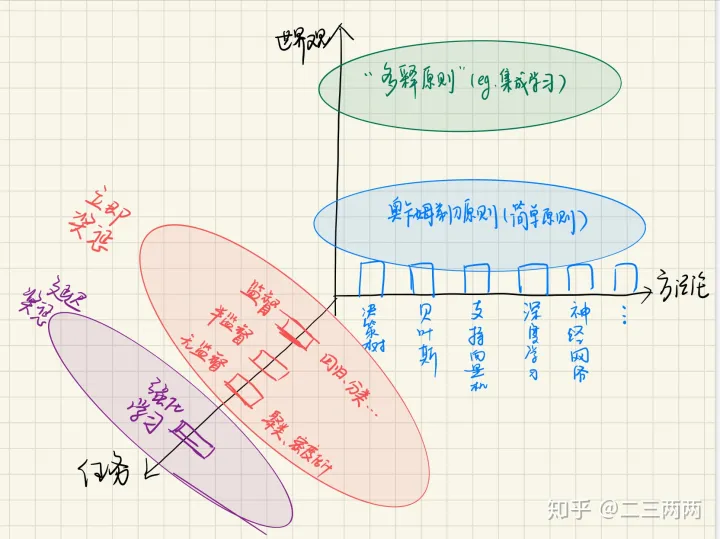 世界观
"多释原则"(eg.集成学习)
奥卡姆剃刀原则(简单原则)
方法论
决策树
贝叶斯
支持向量机
深度学习
神经网络
...
立即
奖惩
监督
半监督
无监督
回归、分类...
聚类、密度估计
延迟
奖惩
强化
学习
任务
知乎 @二三两两